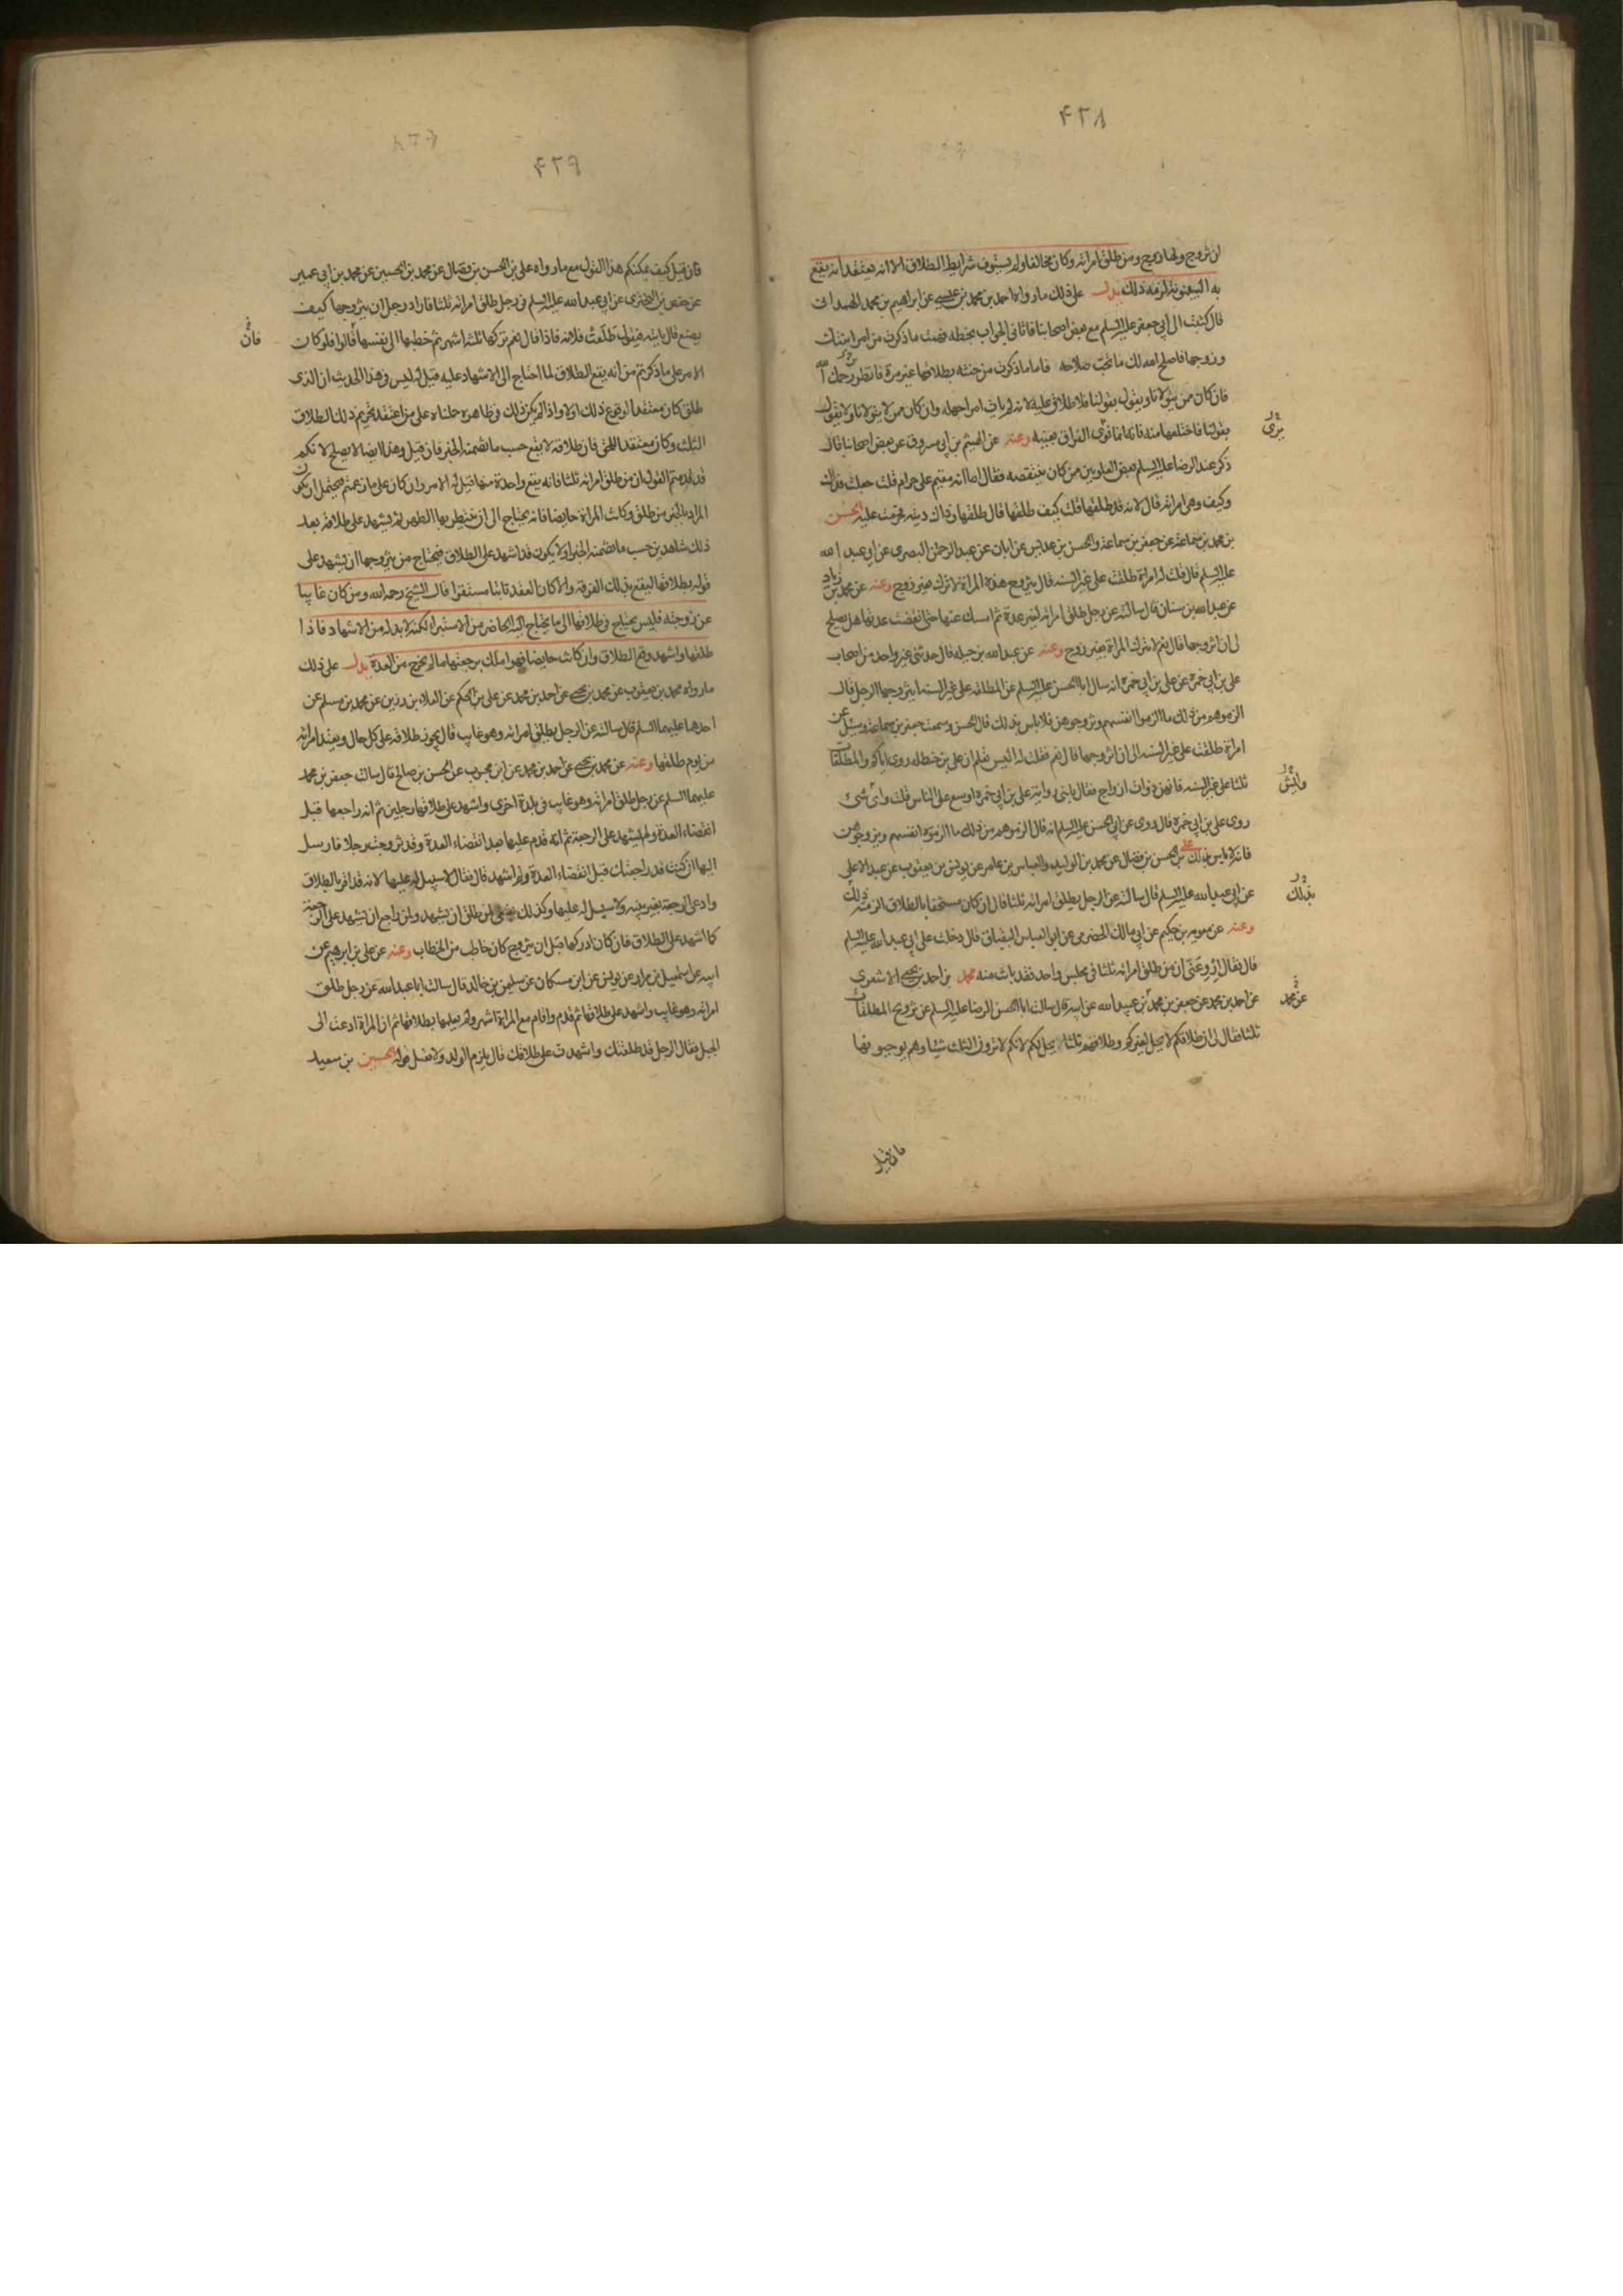 ٤٢٨
ان تزوج ولها زوج ومن طلق امراته وكان مخالفا ولم يستوف شرايط الطلاق الا انه يعتقد انه يقع
به البينونة لزمه ذلك يدل على ذلك ما رواه احمد بن محمد بن عيسى عن ابراهيم بن محمد الهمداني
قال كتبت الى ابي جعفر عليه السلم مع بعض اصحابنا فاتاني الجواب بخطه فهمت ما ذكرت من امر ابنتك
وزوجها فاصلح الله لك ما تحب صلاحه فاما ما ذكرت من حنثه بطلاقها غير مرة فانظر رحمك الله
فان كان ممن يتولانا ويقول بقولنا فلا طلاق عليه لانه لم يات امرا جهله وان كان ممن لا يتولانا ولا يقول
بقولنا فاختلعها منه فانه انما نوى الفراق بعينه وعنه عن الهيثم بن ابي مسروق عن بعض اصحابنا قال
يرى
ذكر عند الرضا عليه السلم بعض العلويين ممن كان ينتقصه فقال اما انه مقيم على حرام قلت جعلت فداك
وكيف وهي امراته قال لانه قد طلقها قلت كيف طلقها قال طلقها وذاك دينه فحرمت عليه الحسن
بن محمد بن سماعة عن جعفر بن سماعة والحسن بن عديس عن ابان عن عبد الرحمن البصري عن ابي عبد الله
عليه السلم قال قلت له امراة طلقت على غير السنه قال يتزوج هذه المراة لا تترك بغير زوج وعنه عن محمد بن زياد
عن عبد الله بن سنان قال سالته عن رجل طلق امراته لغير عدة ثم امسك عنها حتى انقضت عدتها هل يصلح
لي ان اتزوجها قال نعم لا تترك المراة بغير زوج وعنه عن عبد الله بن جبله قال حدثني غير واحد من اصحاب
علي بن ابي حمزه عن علي بن ابي حمزه انه سال ابا الحسن عليه السلم عن المطلقه على غير السنه ايتزوجها الرجل فقال
الزموهم من ذلك ما الزموا انفسهم وتزوجوهن فلا باس بذلك قال الحسن وسمعت جعفر بن سماعه وسئل عن
امراة طلقت على غير السنه الي ان اتزوجها قال نعم فقلت له اليس تعلم ان علي بن حنظله روى اياكم والمطلقات
ثلثا على غير السنه فانهن ذوات ازواج فقال يا بني رواية علي بن ابي حمزه اوسع على الناس قلت واى شئ
روى علي بن ابي حمزه قال روى عن ابي الحسن عليه السلم انه قال الزموهم من ذلك ما الزموه انفسهم وتزوجوهن
فانه لا باس بذلك علي بن الحسن بن فضال عن محمد بن الوليد والعباس بن عامر عن يونس بن يعقوب عن عبد الاعلى
عن ابي عبد الله عليه السلم قال سالته عن الرجل يطلق امراته ثلثا قال ان كان مستخفا بالطلاق الزمته ذلك
بذلك
وعنه عن معويه بن حكيم عن ابي مالك الحضرمي عن ابي العباس البقباق قال دخلت على ابي عبد الله عليه السلم
فقال لي ارو عني ان من طلق امراته ثلثا في مجلس واحد فقد بانت منه محمد بن احمد بن يحيى الاشعري
عن احمد بن محمد عن جعفر بن محمد بن عبيد الله عن ابيه قال سالت ابا الحسن الرضا عليه السلم عن تزويج المطلقات
عن محمد
ثلثا فقال لي ان طلاقكم لا يحل لغيركم وطلاقهم ثلثا يحل لكم لانكم لا ترون الثلث شيئا وهم يوجبونها
فان قيل
٤٢٩
فان قيل كيف يمكنكم هذا القول مع ما رواه علي بن الحسن بن فضال عن محمد بن الحسين عن محمد بن ابي عمير
عن حفص بن البختري عن ابي عبد الله عليه السلم في رجل طلق امراته ثلثا فاراد رجل ان يتزوجها كيف
يصنع قال ياتيه فيقول طلقت فلانه فاذا قال نعم تركها ثلثه اشهر ثم خطبها الى نفسها قالوا فلو كان
فان
الامر على ما ذكرتم من انه يقع الطلاق لما احتاج الى الاشهاد عليه قيل له ليس في هذا الحديث ان الذي
طلق كان معتقدا لوقوع ذلك اولا واذا لم يكن ذلك في ظاهره حملناه على من اعتقد تحريم ذلك الطلاق
الثلث وكان معتقد الحق فان طلاقه لا يقع حسب ما تضمنه الخبر فان قيل وهذا ايضا لا يصلح لانكم
قد قدمتم القول ان من طلق امراته ثلثا فانه يقع واحدة منها قيل له الامر وان كان على ما زعمتم فيحتمل ان يكون
المراد بالخبر من طلق وكانت المراة حايضا فانه يحتاج الى ان ينتظر بها الطهر ثم يشهد على طلاقه بعد
ذلك شاهدين حسب ما تضمنه الخبر او لا يكون قد اشهد على الطلاق فيحتاج من يتزوجها ان يشهد على
قوله بطلاقها ليقع بذلك الفرقه والا كان العقد ثابتا مستقرا قال الشيخ رحمه الله ومن كان غايبا
عن زوجته فليس يحتاج في طلاقها الى ما يحتاج اليه الحاضر من الاستبراء لكنه لا بد له من الاشهاد فاذا
طلقها واشهد وقع الطلاق وان كانت حايضا فهو املك برجعتها ما لم تخرج من العدة يدل على ذلك
ما رواه محمد بن يعقوب عن محمد بن يحيى عن احمد بن محمد عن علي بن الحكم عن العلاء بن رزين عن محمد بن مسلم عن
احدهما عليهما السلم قال سالته عن الرجل يطلق امراته وهو غايب قال يجوز طلاقه على كل حال وتعتد امراته
من يوم طلقها وعنه عن محمد بن يحيى عن احمد بن محمد عن ابن محبوب عن الحسن بن صالح قال سالت جعفر بن محمد
عليهما السلم عن رجل طلق امراته وهو غايب في بلدة اخرى واشهد على طلاقها رجلين ثم انه راجعها قبل
انقضاء العدة ولم يشهد على الرجعة ثم انه قدم عليها بعد انقضاء العدة وقد تزوجت رجلا فارسل
اليها اني كنت قد راجعتك قبل انقضاء العدة ولم اشهد قال فقال لا سبيل له عليها لانه قد اقر بالطلاق
وادعى الرجعة بغير بينه ولا سبيل له عليها وكذلك ينبغي لمن طلق ان يشهد ولمن راجع ان يشهد على الرجعة
كما اشهد على الطلاق فان كان ادركها قبل ان يتزوج كان خاطب من الخطاب وعنه عن علي بن ابرهيم عن
ابيه عن اسمعيل بن مرار عن يونس عن ابن مسكان عن سليمن بن خالد قال سالت ابا عبد الله عن رجل طلق
امراته وهو غايب واشهد على طلاقها ثم قدم واقام مع المراة اشهر ولم يعلمها بطلاقها ثم ان المراة ادعت
الحبل فقال الرجل قد طلقتك واشهدت على طلاقك قال يلزم الولد ولا يقبل قوله الحسين بن سعيد